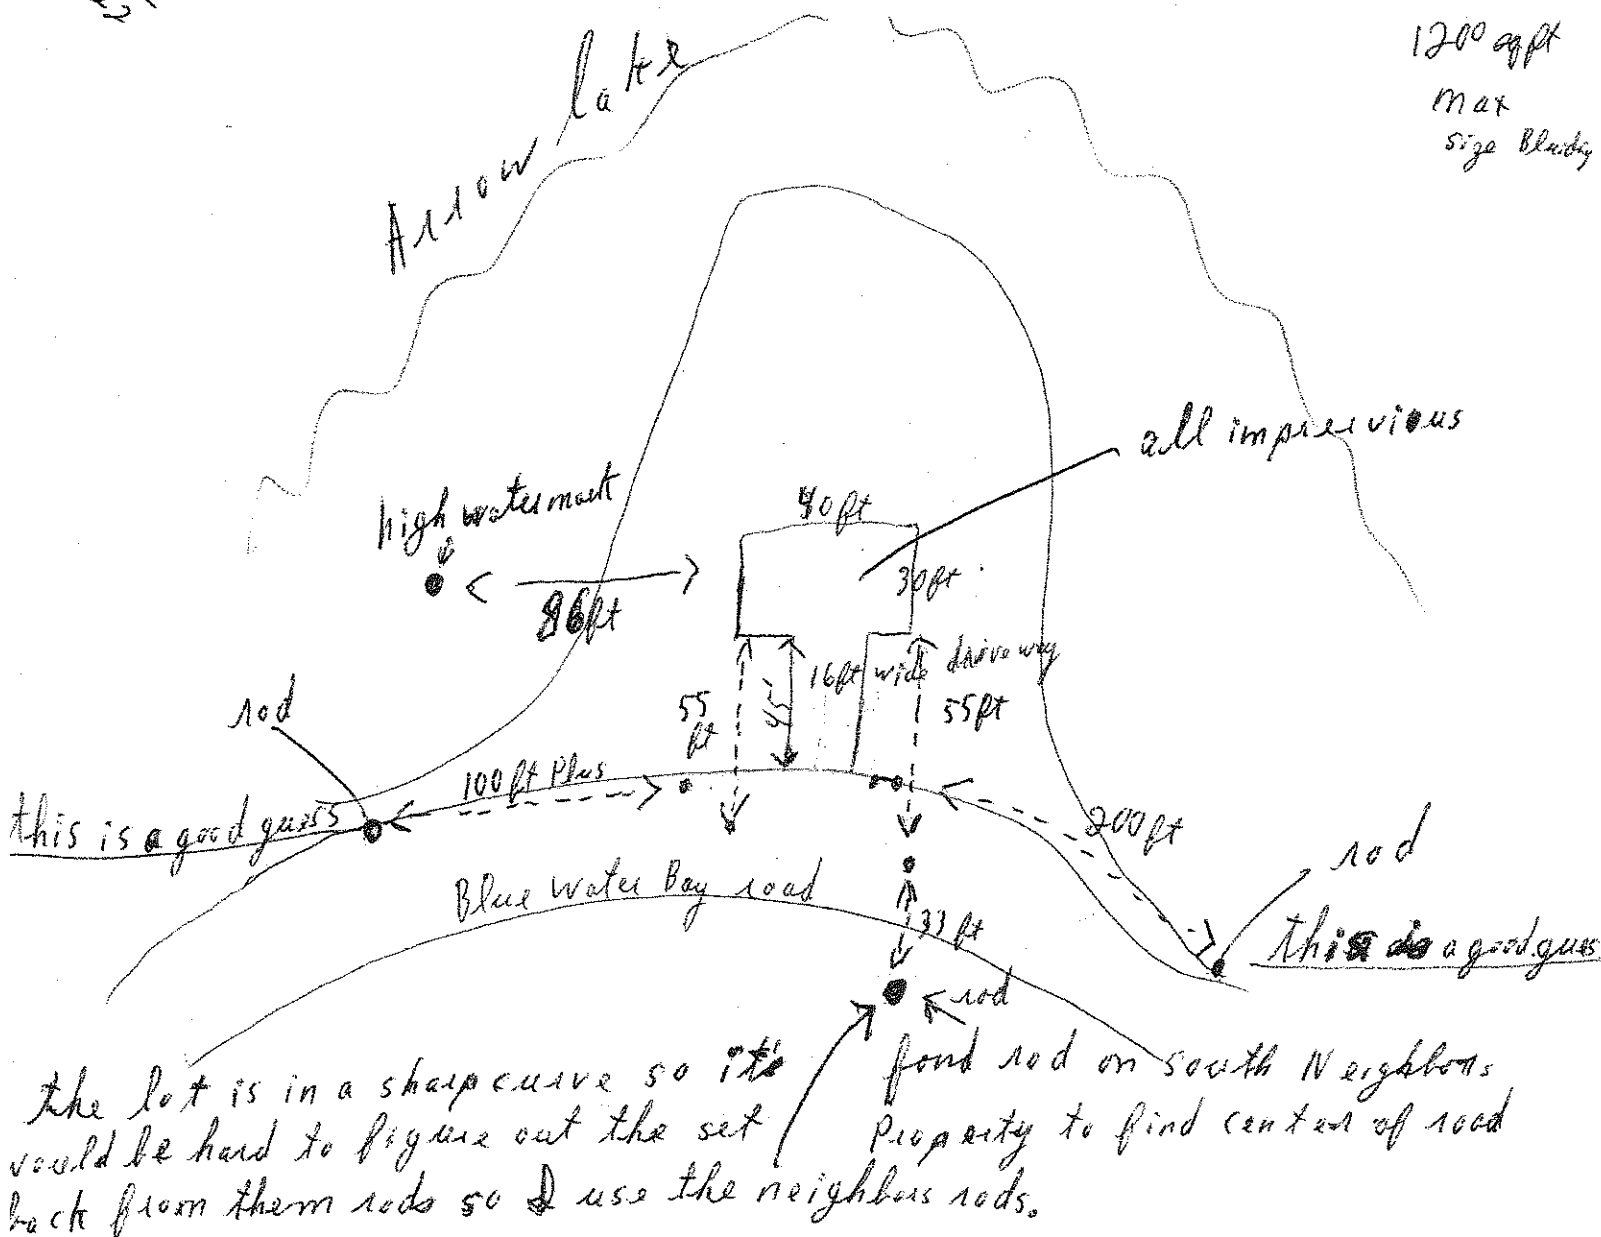 1200 sqft
max
size Bluidg
Arrow lake
all impreevious
high watermark
40ft
30ft
86ft
16ft wide driveway
55
ft
45'
55ft
rod
100ft Plus
this is a good guess
200ft
rod
Blue Water Bay road
33 ft
this is a good guess
rod
the lot is in a sharp curve so it's
would be hard to figure out the set
back from them rods so I use the neighbors rods.
fond rod on south Neighbors
Property to find center of road